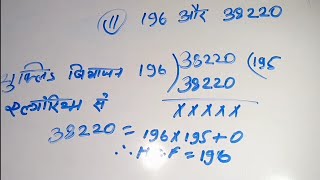 (ii) 196 और 38220
196 ) 38220 ( 195
युक्लिड विभाजन 38220
एल्गोरिथ्म से x x x x x
38220 = 196 x 195 + 0
∴ H.C.F = 196